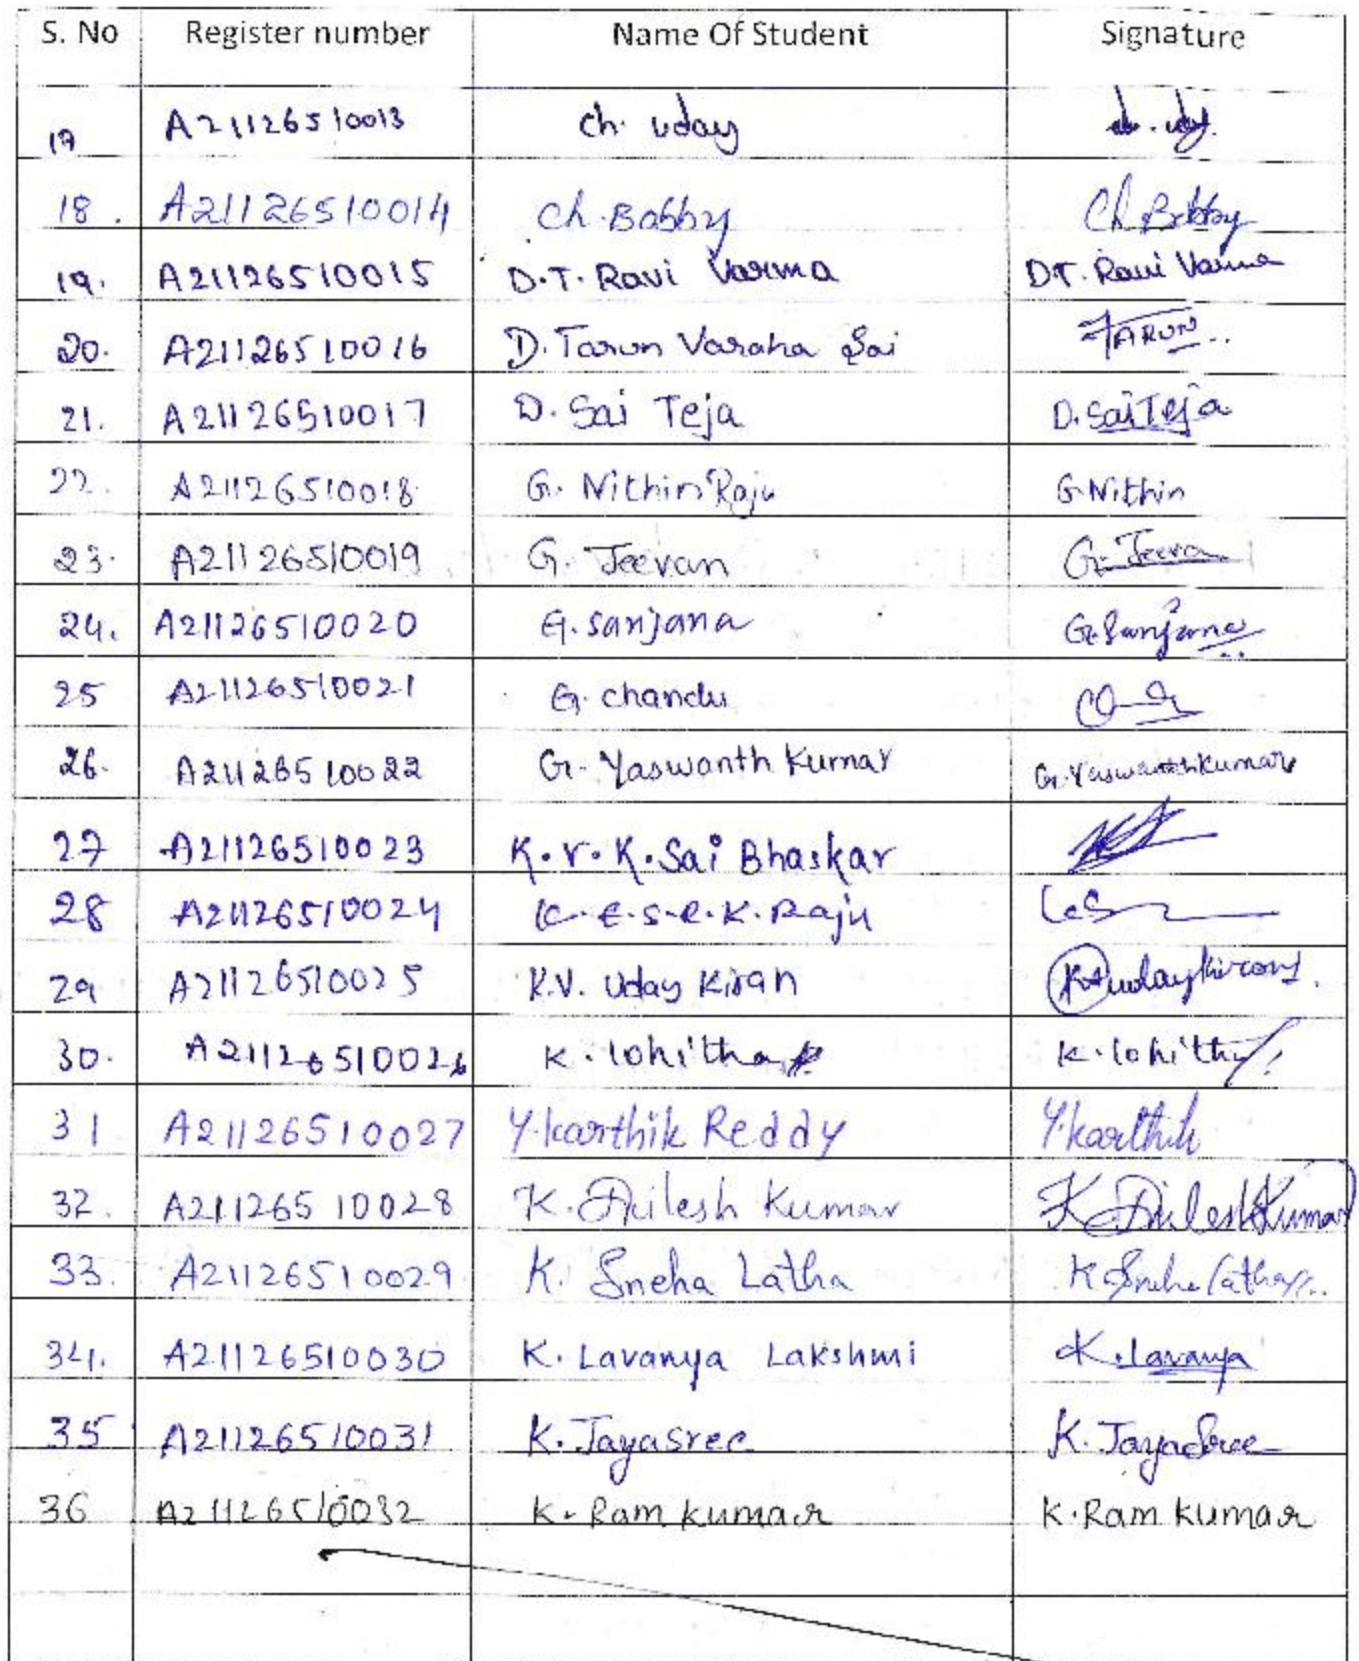 S. No Register number Name Of Student Signature
17 A21126510013 Ch. Uday ch. uday
18. A21126510014 Ch. Bobby Ch Bobby
19. A21126510015 D.T. Ravi Varma D.T. Ravi Varma
20. A21126510016 D. Tarun Varaha Sai TARUN..
21. A21126510017 D. Sai Teja D. Sai Teja
22. A21126510018 G. Nithin Raju G Nithin
23. A21126510019 G. Jeevan G. Jeeva
24. A21126510020 G. Sanjana G. Sanjana
25 A21126510021 G. chandu
26. A21126510022 G. Yaswanth Kumar G. Yaswanth Kumar
27 A21126510023 K.V.K. Sai Bhaskar
28 A21126510024 K.E.S.R.K. Raju
29 A21126510025 K.V. Uday Kiran uday kiran
30. A21126510026 K. lohitha K. lohith
31 A21126510027 Y. karthik Reddy Y. karthik
32. A21126510028 K. Kumar K. Kumar
33. A21126510029 K. Sneha Latha K Sneha latha
34. A21126510030 K. Lavanya Lakshmi K. lavanya
35 A21126510031 K. Jayasree K. Jayasree
36 A21126510032 K. Ram kumar K. Ram kumar